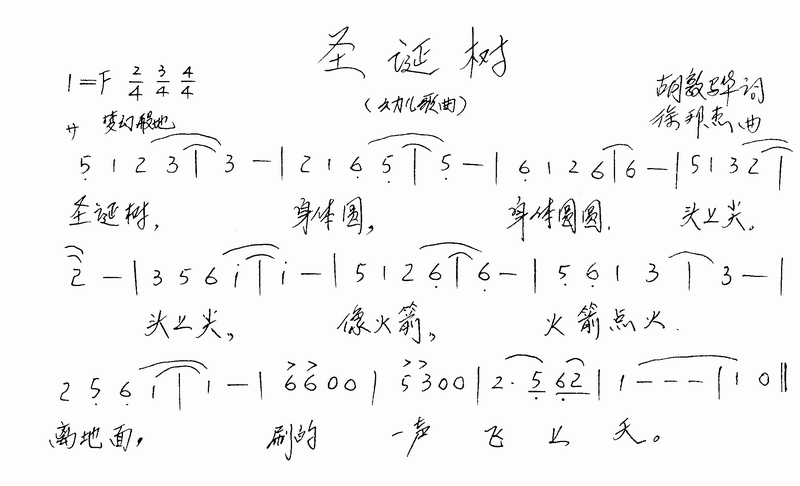 圣诞树
1=F 2/4 3/4 4/4
(幼儿歌曲)
胡敦骅词
徐邦杰曲
サ 梦幻般地
5 1 2 3 | 3 - | 2 1 6 5 | 5 - | 6 1 2 6 | 6 - | 5 1 3 2 |
圣诞树, 身体圆, 身体圆圆. 头上尖。
2 - | 3 5 6 i | i - | 5 1 2 6 | 6 - | 5 6 1 3 | 3 - |
头上尖, 像火箭, 火箭点火.
2 5 6 1 | 1 - | 6 6 0 0 | 5 3 0 0 | 2· 5 6 2 | 1 - - - | 1 0 ‖
离地面, 刷的 一声 飞上天。